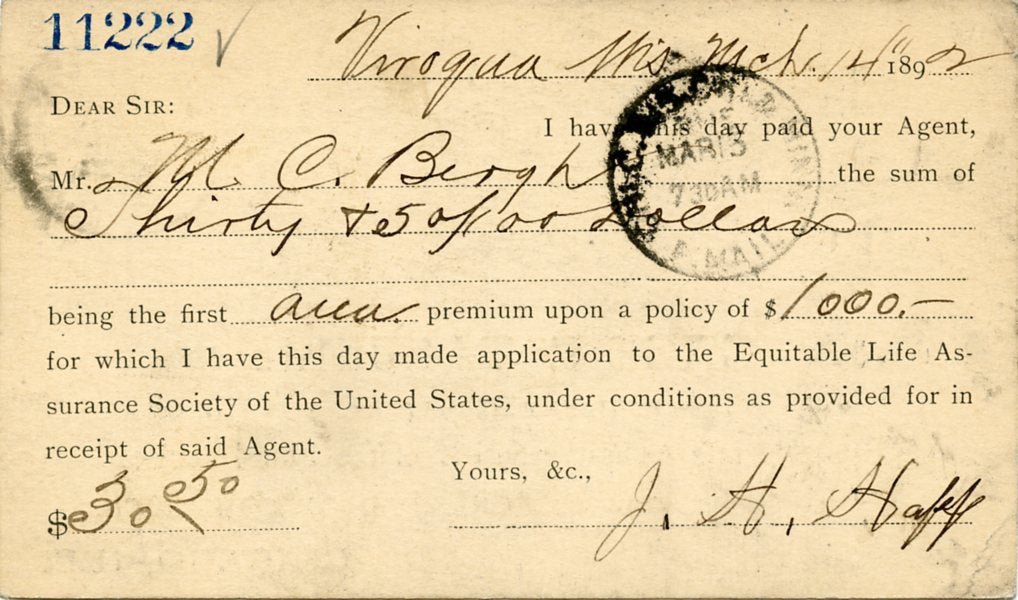 11222
Viroqua Wis Mch. 14" 1892
DEAR SIR:
I have this day paid your Agent,
Mr. M. C. Bergh the sum of
Thirty + 50/00 Dollars
being the first ann. premium upon a policy of $1000.—
for which I have this day made application to the Equitable Life As-
surance Society of the United States, under conditions as provided for in
receipt of said Agent.
Yours, &c.,
$30 50
J. H. Haff
MAR 15
7 30 AM
MAIL